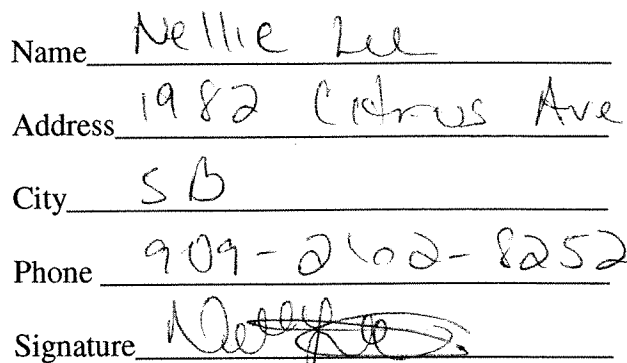 Name Nellie Lee
Address 1982 Citrus Ave
City SB
Phone 909-262-8252
Signature